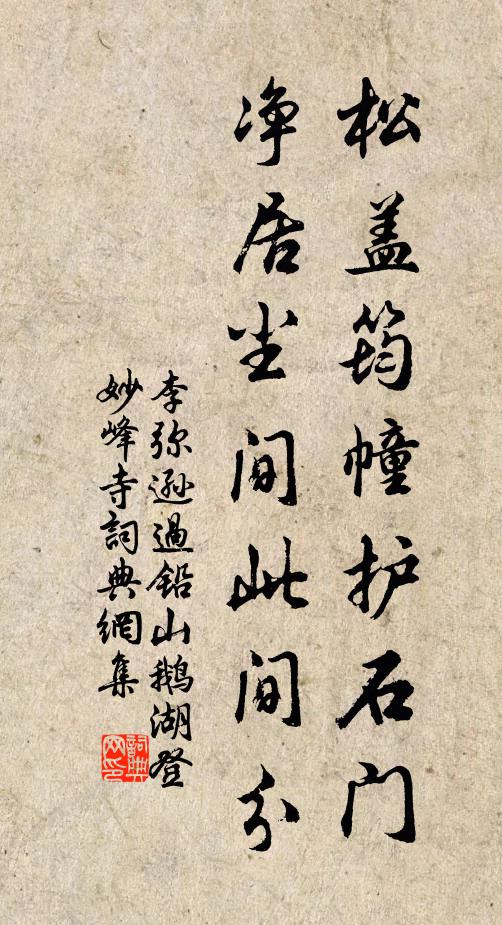 松盖筠幢护石门
净居尘间此间分
李弥逊過铅山鹅湖登
妙峰寺詞典網集
詞典网印